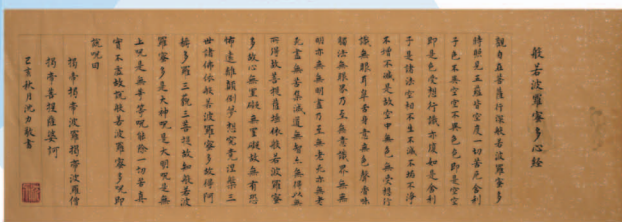 般若波羅蜜多心經
觀自在菩薩行深般若波羅蜜多
時照見五蘊皆空度一切苦厄舍利
子色不異空空不異色色即是空空
即是色受想行識亦復如是舍利
子是諸法空相不生不滅不垢不淨
不增不減是故空中無色無受想行
識無眼耳鼻舌身意無色聲香味
觸法無眼界乃至無意識界無無
明亦無無明盡乃至無老死亦無老
死盡無苦集滅道無智亦無得以無
所得故菩提薩埵依般若波羅蜜
多故心無罣礙無罣礙故無有恐
怖遠離顛倒夢想究竟涅槃三
世諸佛依般若波羅蜜多故得阿
耨多羅三藐三菩提故知般若波
羅蜜多是大神呪是大明呪是無
上呪是無等等呪能除一切苦真
實不虛故說般若波羅蜜多呪即
說呪曰
揭帝揭帝波羅揭帝波羅僧
揭帝菩提薩婆訶
己亥秋月沈力敬書